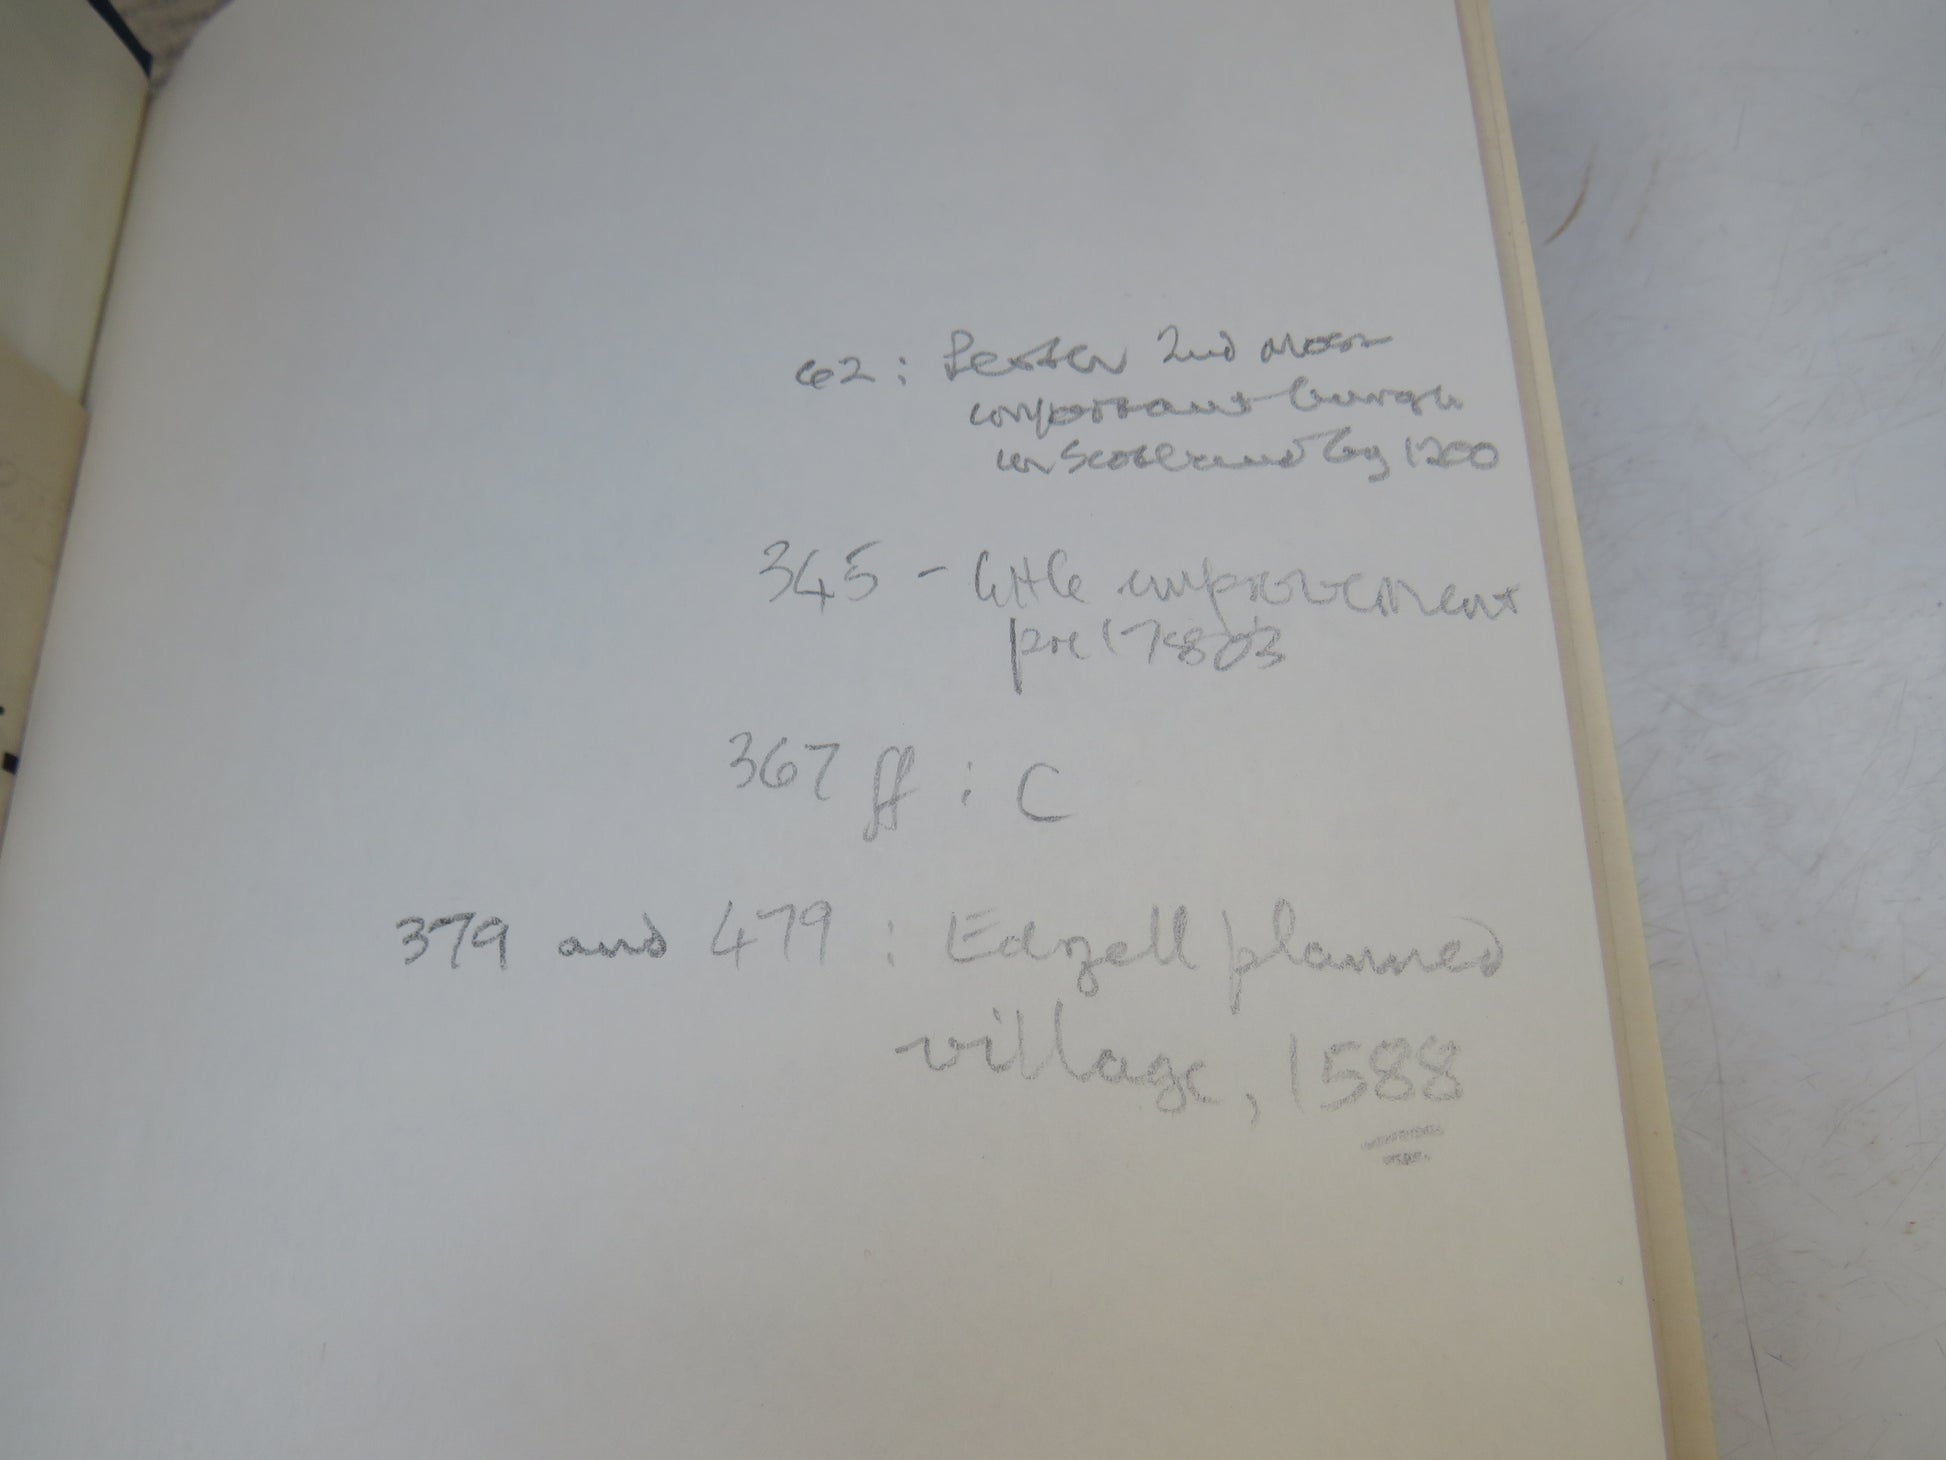 62 : 2nd most
important burgh
in Scotland by 1200
345 - little improvement
pre 1780s
367 ff : C
379 and 479 : Edzell planned
village, 1588